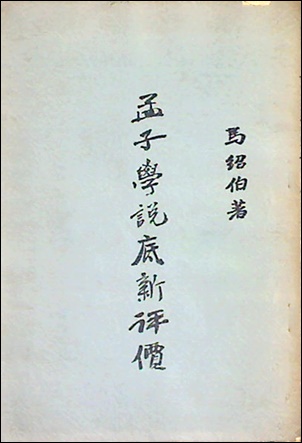 馬紹伯著
孟子學說底新評價